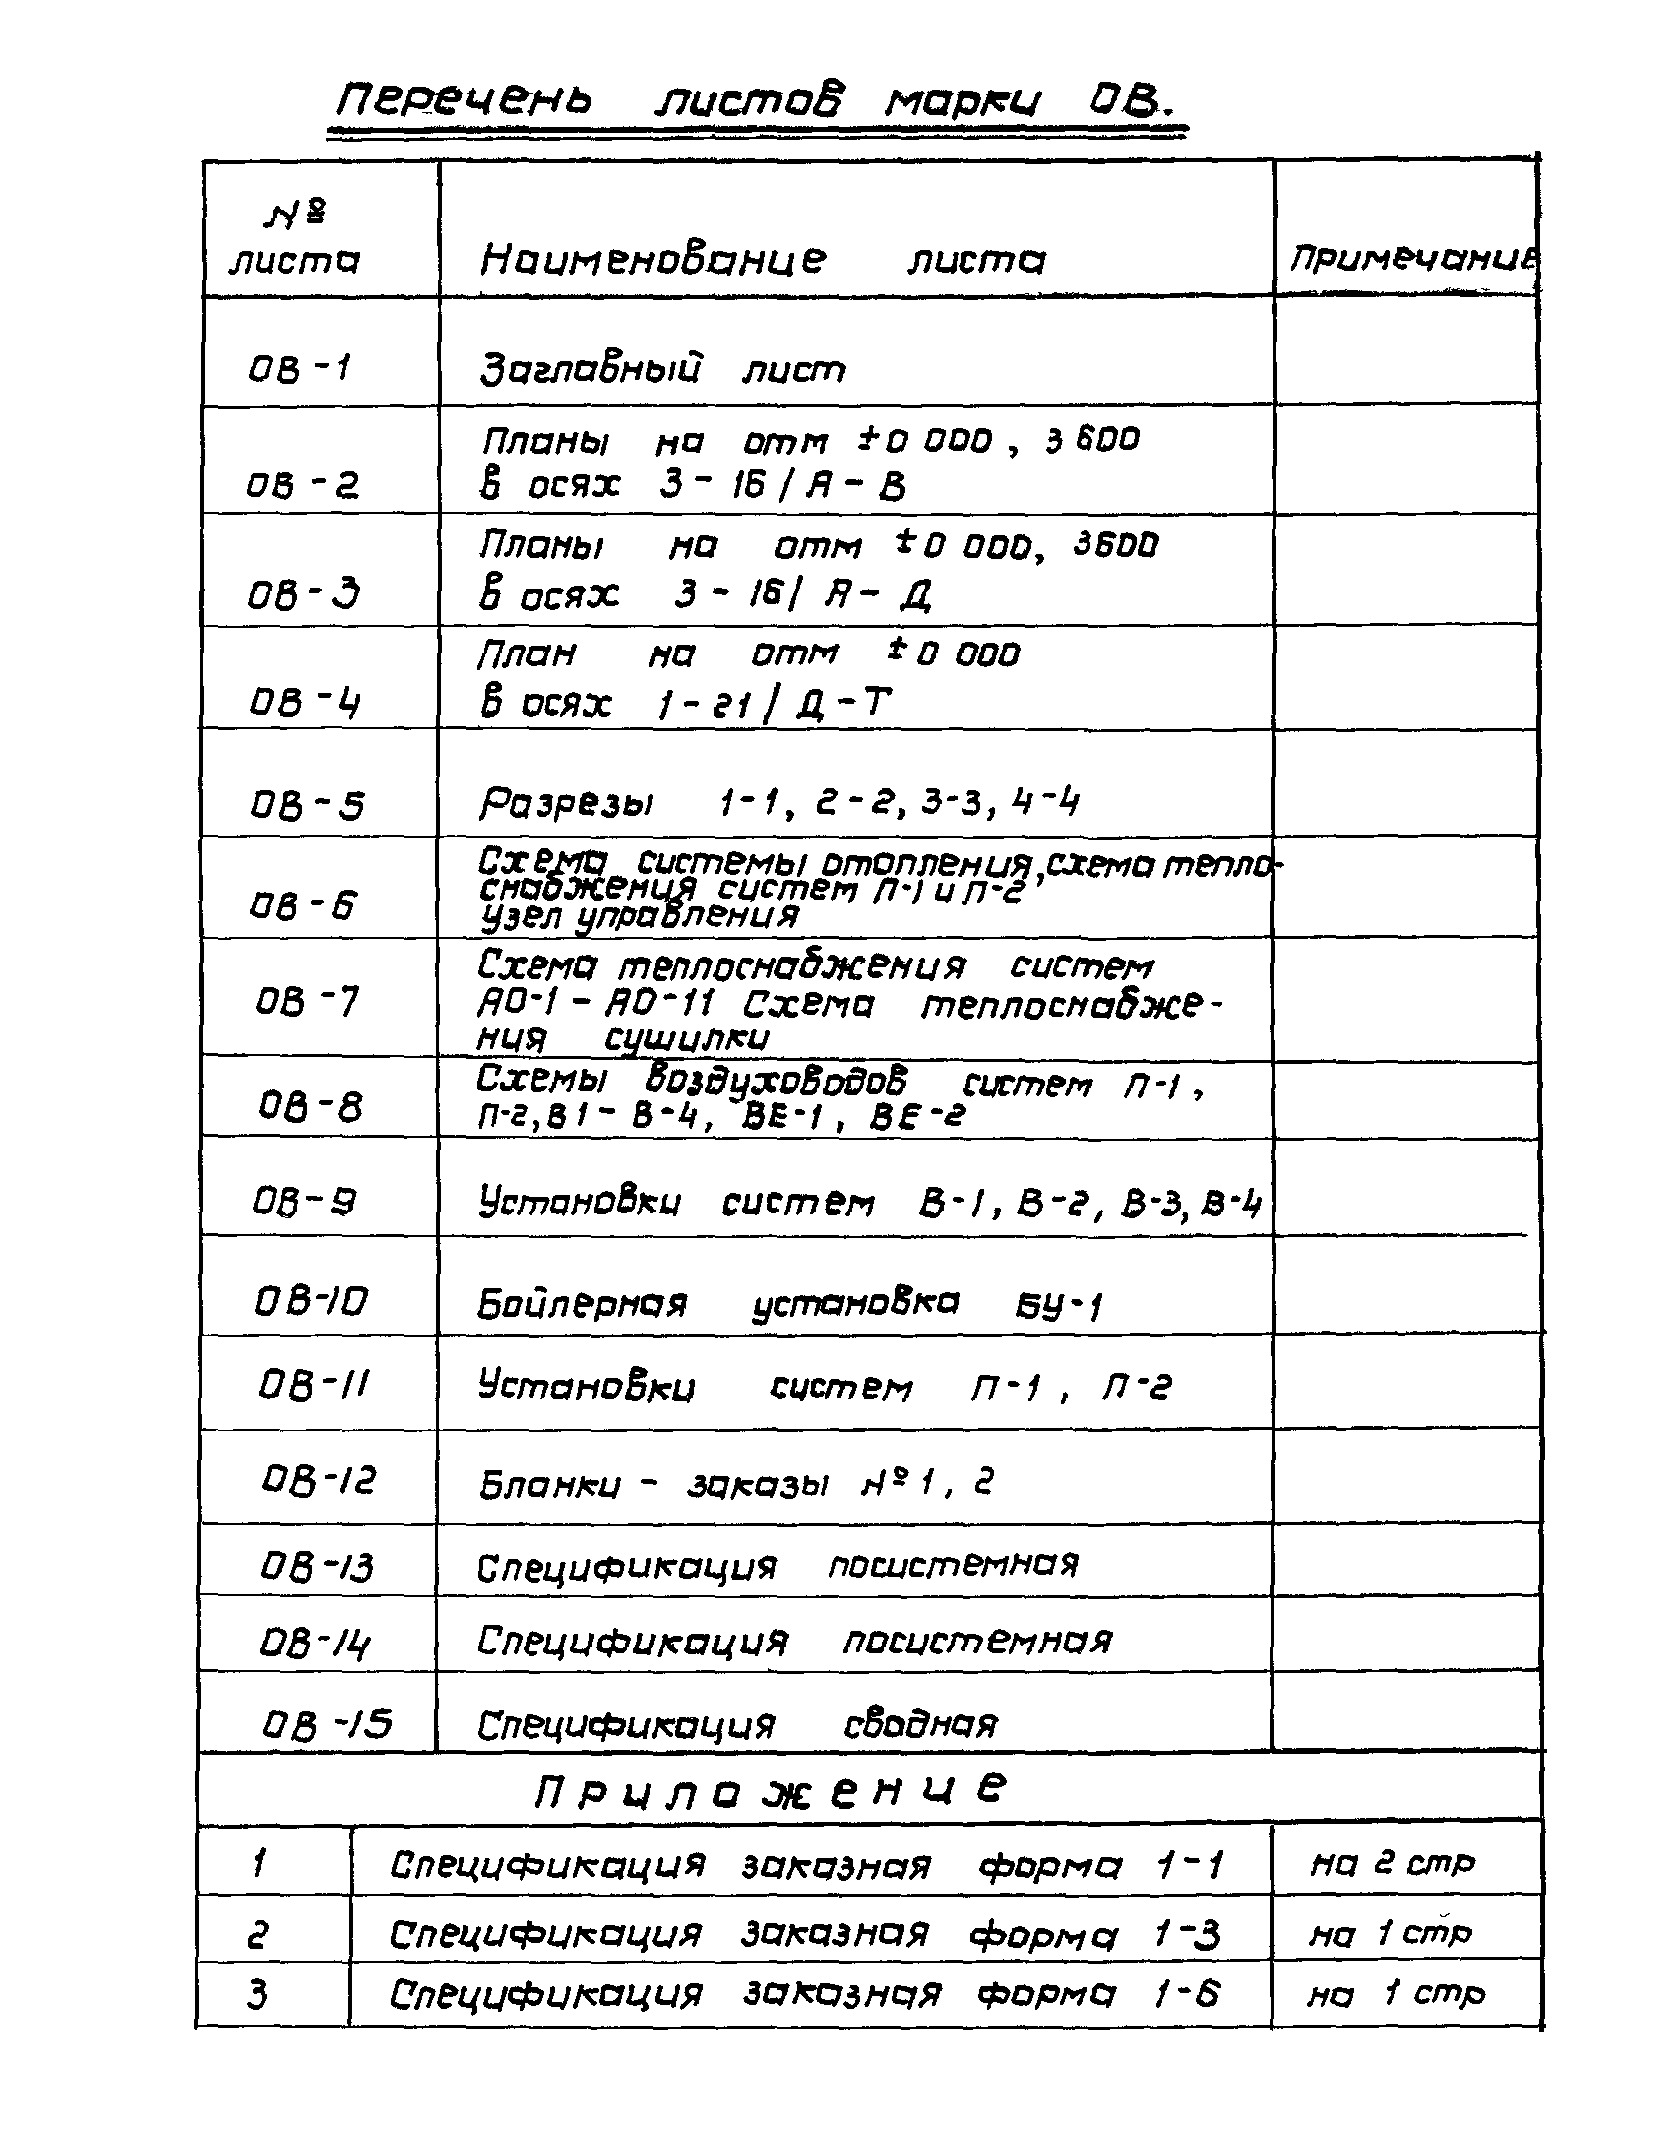 Перечень листов марки ОВ.
№
листа
Наименование листа
Примечание
ОВ-1
Заглавный лист
Планы на отм ±0 000, 3 600
ОВ-2
в осях 3-16/А-В
Планы на отм ±0 000, 3600
ОВ-3
в осях 3-16/А-Д
План на отм ±0 000
ОВ-4
в осях 1-21/Д-Т
ОВ-5
Разрезы 1-1, 2-2, 3-3, 4-4
Схема системы отопления, схема тепло-
снабжения систем П-1 и П-2,
ОВ-6
узел управления
Схема теплоснабжения систем
ОВ-7
АО-1 - АО-11 Схема теплоснабже-
ния сушилки
Схемы воздуховодов систем П-1,
ОВ-8
П-2, В1- В-4, ВЕ-1, ВЕ-2
ОВ-9
Установки систем В-1, В-2, В-3, В-4
ОВ-10
Бойлерная установка БУ-1
ОВ-11
Установки систем П-1, П-2
ОВ-12
Бланки - заказы №1, 2
ОВ-13
Спецификация посистемная
ОВ-14
Спецификация посистемная
ОВ-15
Спецификация сводная
Приложение
1
Спецификация заказная форма 1-1
на 2 стр
2
Спецификация заказная форма 1-3
на 1 стр
3
Спецификация заказная форма 1-6
на 1 стр